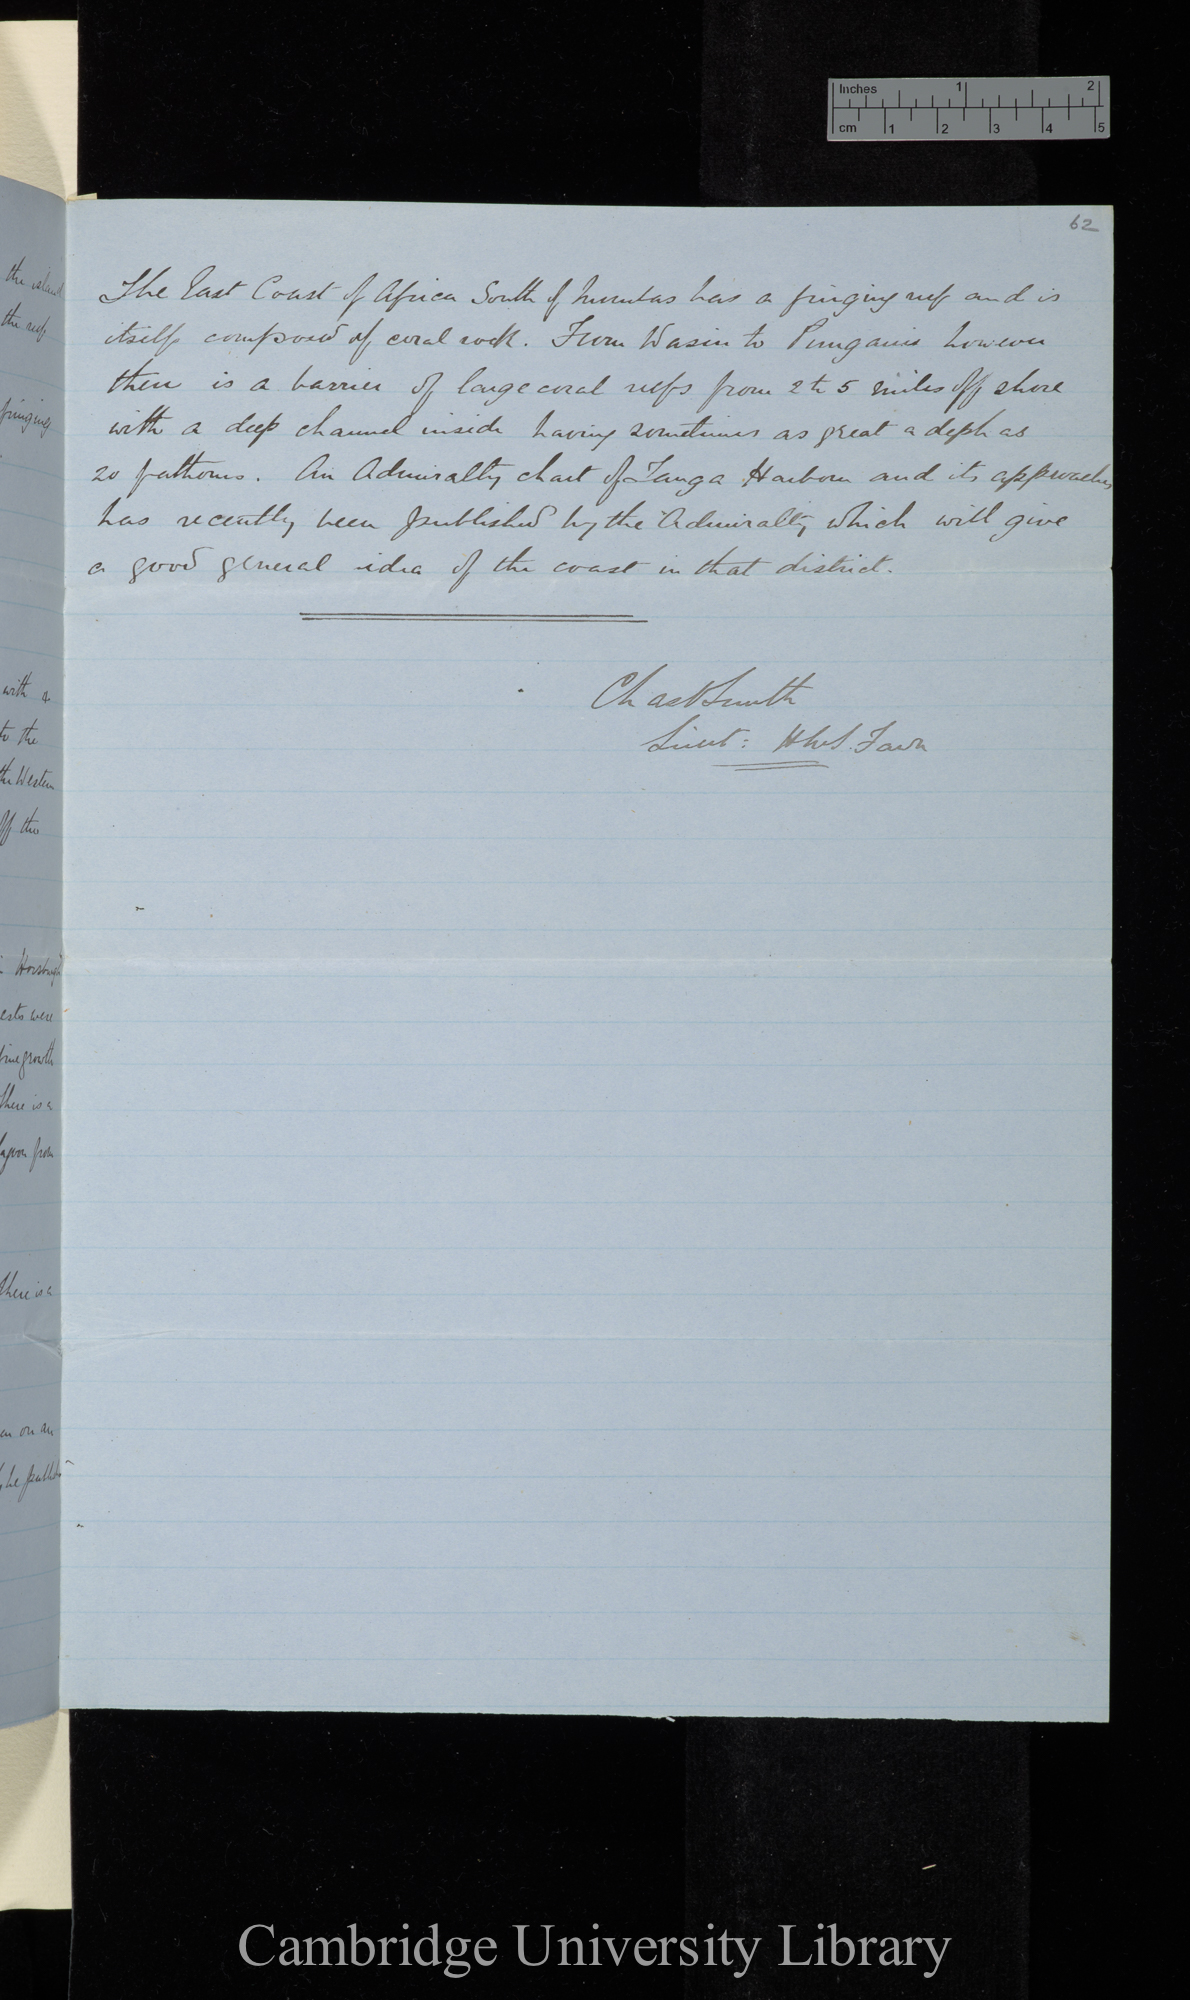 Inches 1 2
cm 1 2 3 4 5
62
the island
the reef
fringing
with a
to the
the Western
off the
Horsburgh
ests were
fine growth
There is a
lagoon from
There is a
on an
be publish
The East Coast of Africa South of Mombas has a fringing reef and is
itself composed of coral rock. From Wasin to Pungani however
there is a barrier of large coral reefs from 2 to 5 miles off shore
with a deep channel inside having sometimes as great a depth as
20 fathoms. An Admiralty chart of Tanga Harbour and its approaches
has recently been published by the Admiralty which will give
a good general idea of the coast in that district.
Chas Smith
Lieut: HMS. Fawn
Cambridge University Library